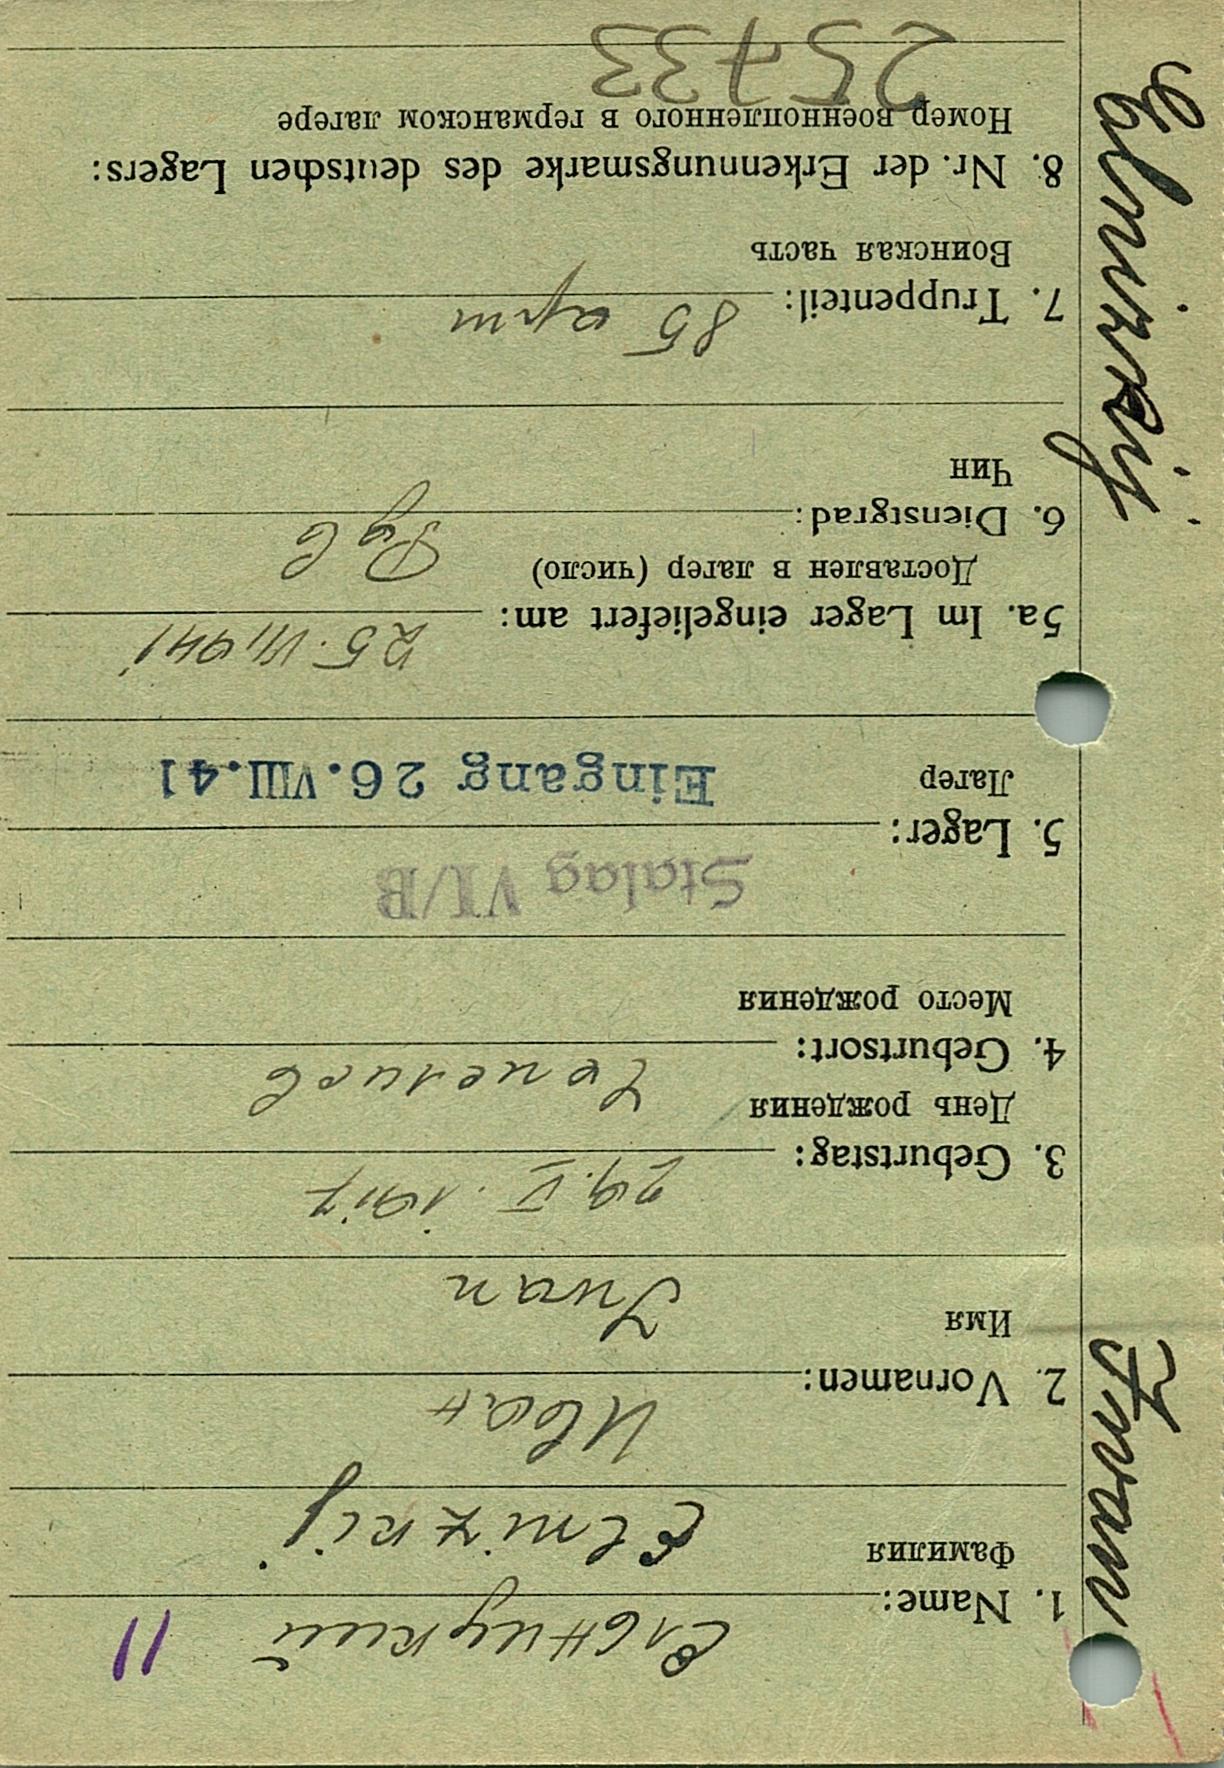 11
1. Name:
Фамилия
Elnizkij
2. Vornamen: Иван
Имя
Iwan
3. Geburtstag: 29.V.1917
День рождения
4. Geburtsort:
Место рождения
Stalag VI/B
5. Lager:
Лагерь
Eingang 26.VIII.41
5a. Im Lager eingeliefert am: 25.VII.1941
Доставлен в лагер (число)
6. Dienstgrad:
Чин
7. Truppenteil: 85
Воинская часть
8. Nr. der Erkennungsmarke des deutschen Lagers:
Номер военнопленного в германском лагере
25733
Elnizkij Iwan